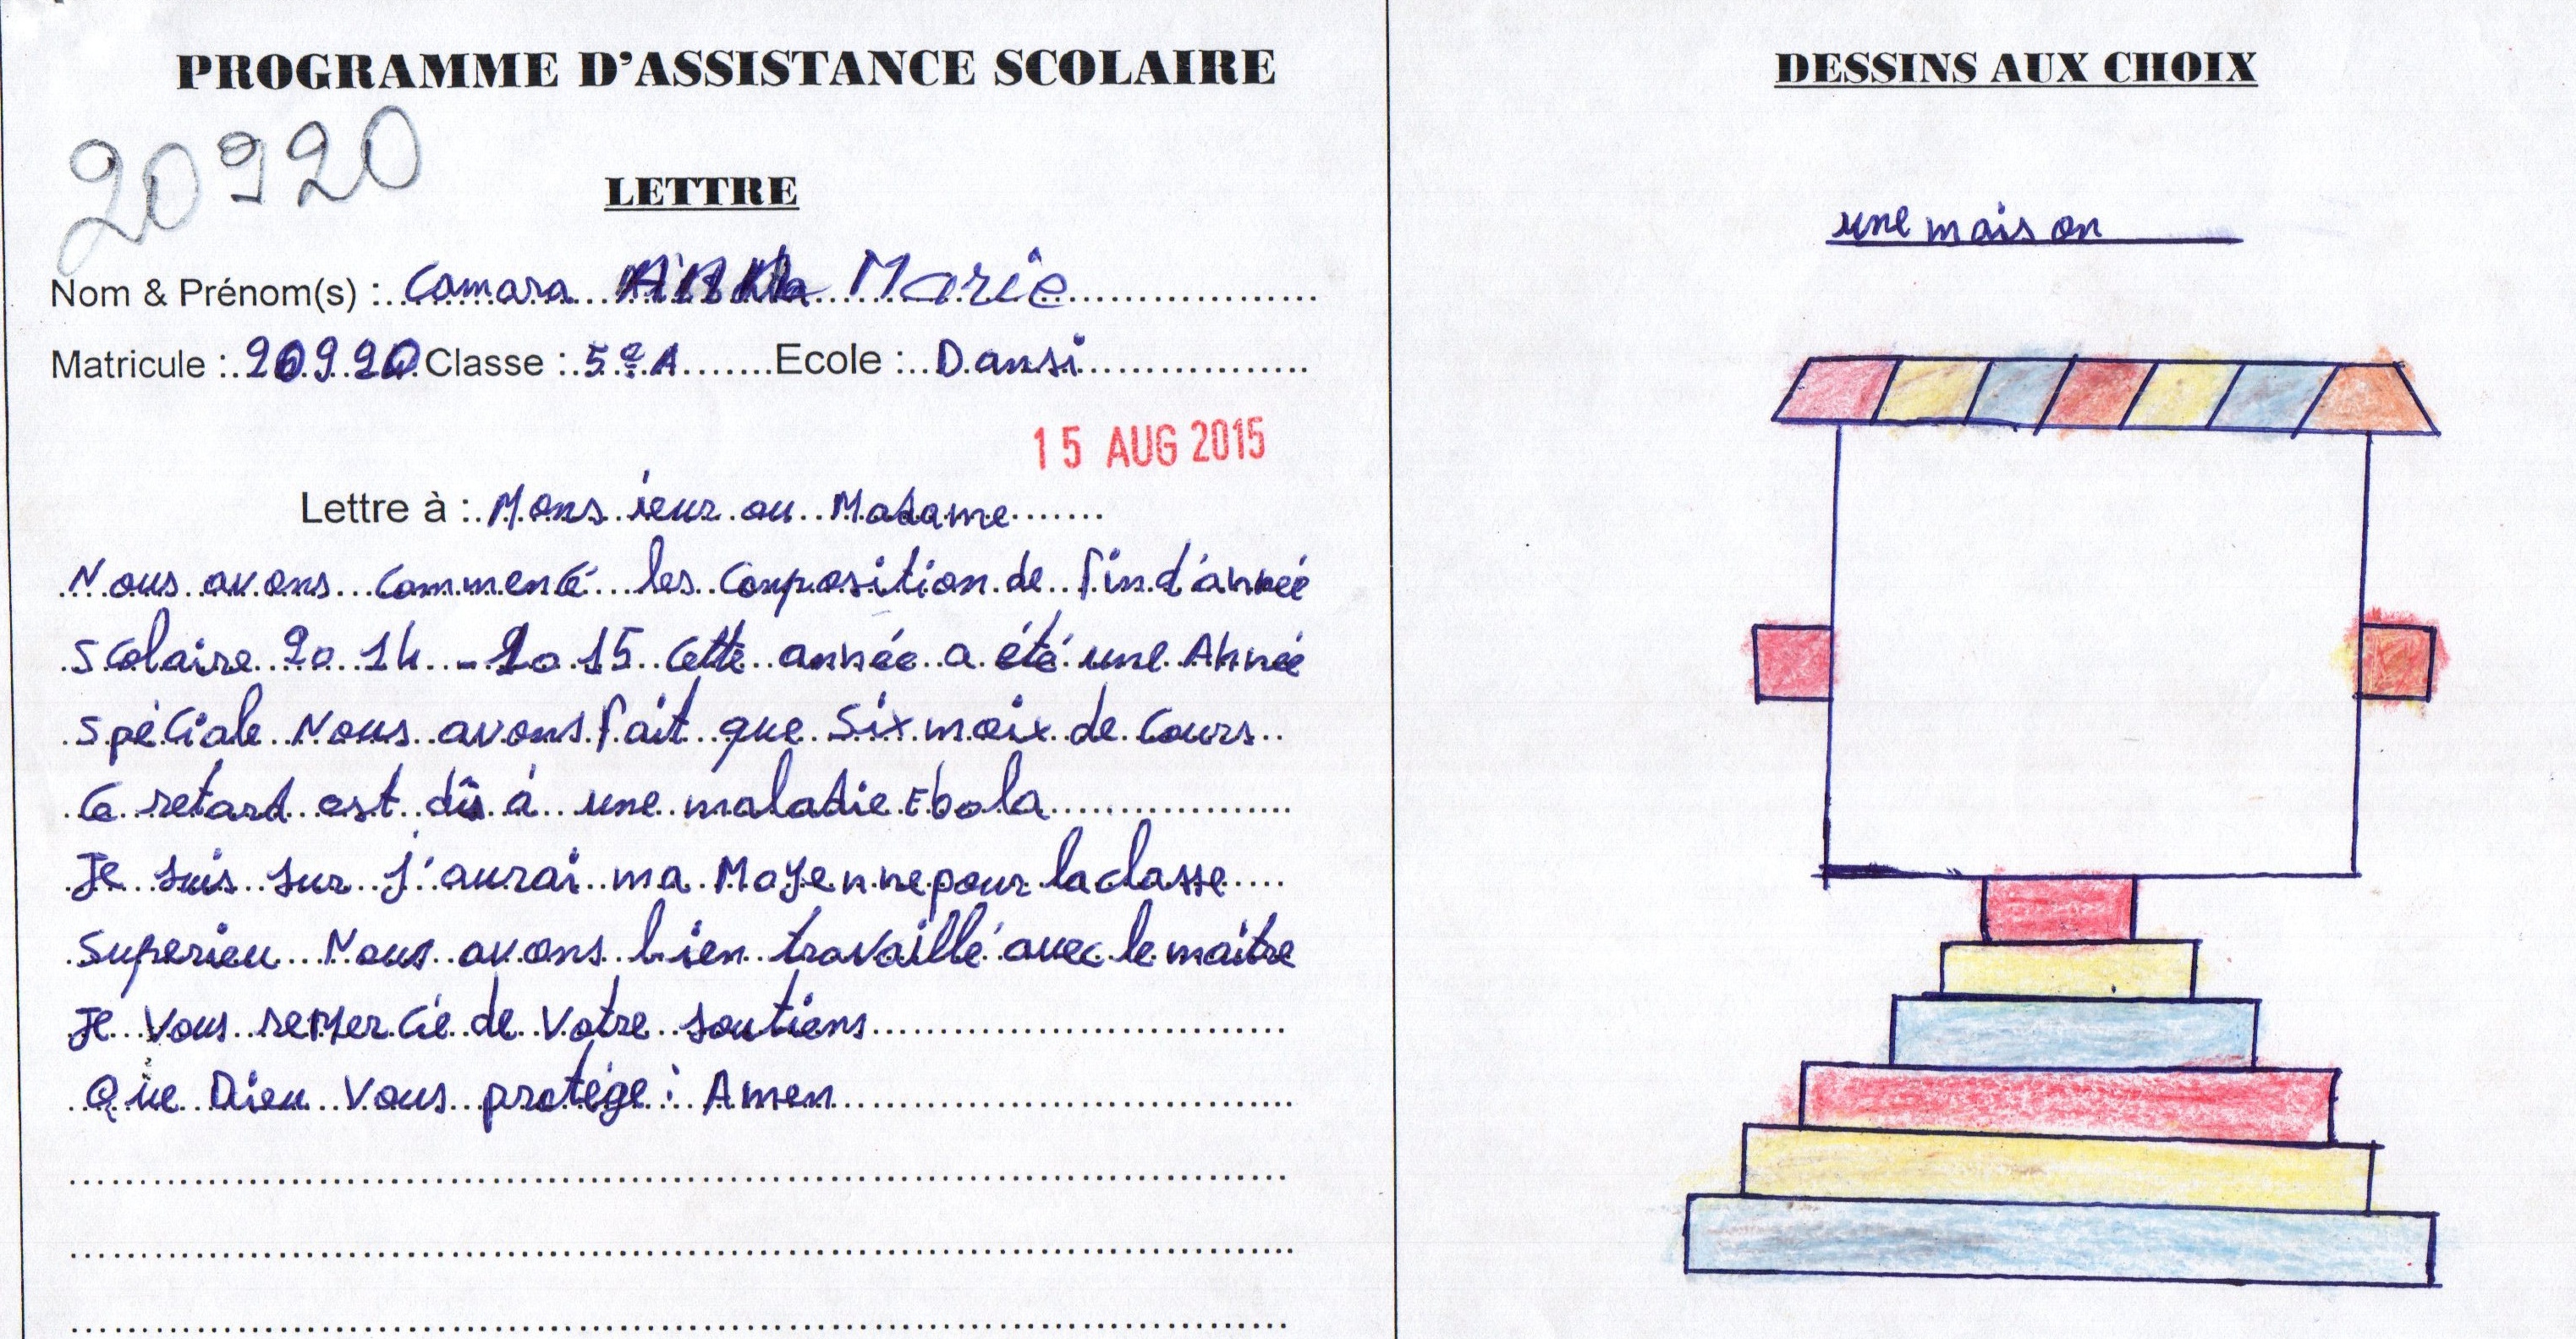 PROGRAMME D'ASSISTANCE SCOLAIRE
20920
LETTRE
Nom & Prénom(s) : Camara Marie
Matricule : 20920 Classe : 5e A Ecole : Dansi
15 AUG 2015
Lettre à : Monsieur ou Madame
Nous avons commencé les Conposition de fin d'année
Scolaire 2014 - 2015 Cette année a été une Année
Spéciale Nous avons fait que Six moix de Cours
Ce retard est dû à une maladie Ebola
Je suis sur j'aurai ma Moyenne pour la classe
Superieu Nous avons bien travaillé avec le maître
Je Vous remercie de Votre soutiens
Que Dieu Vous protége : Amen
DESSINS AUX CHOIX
une maison